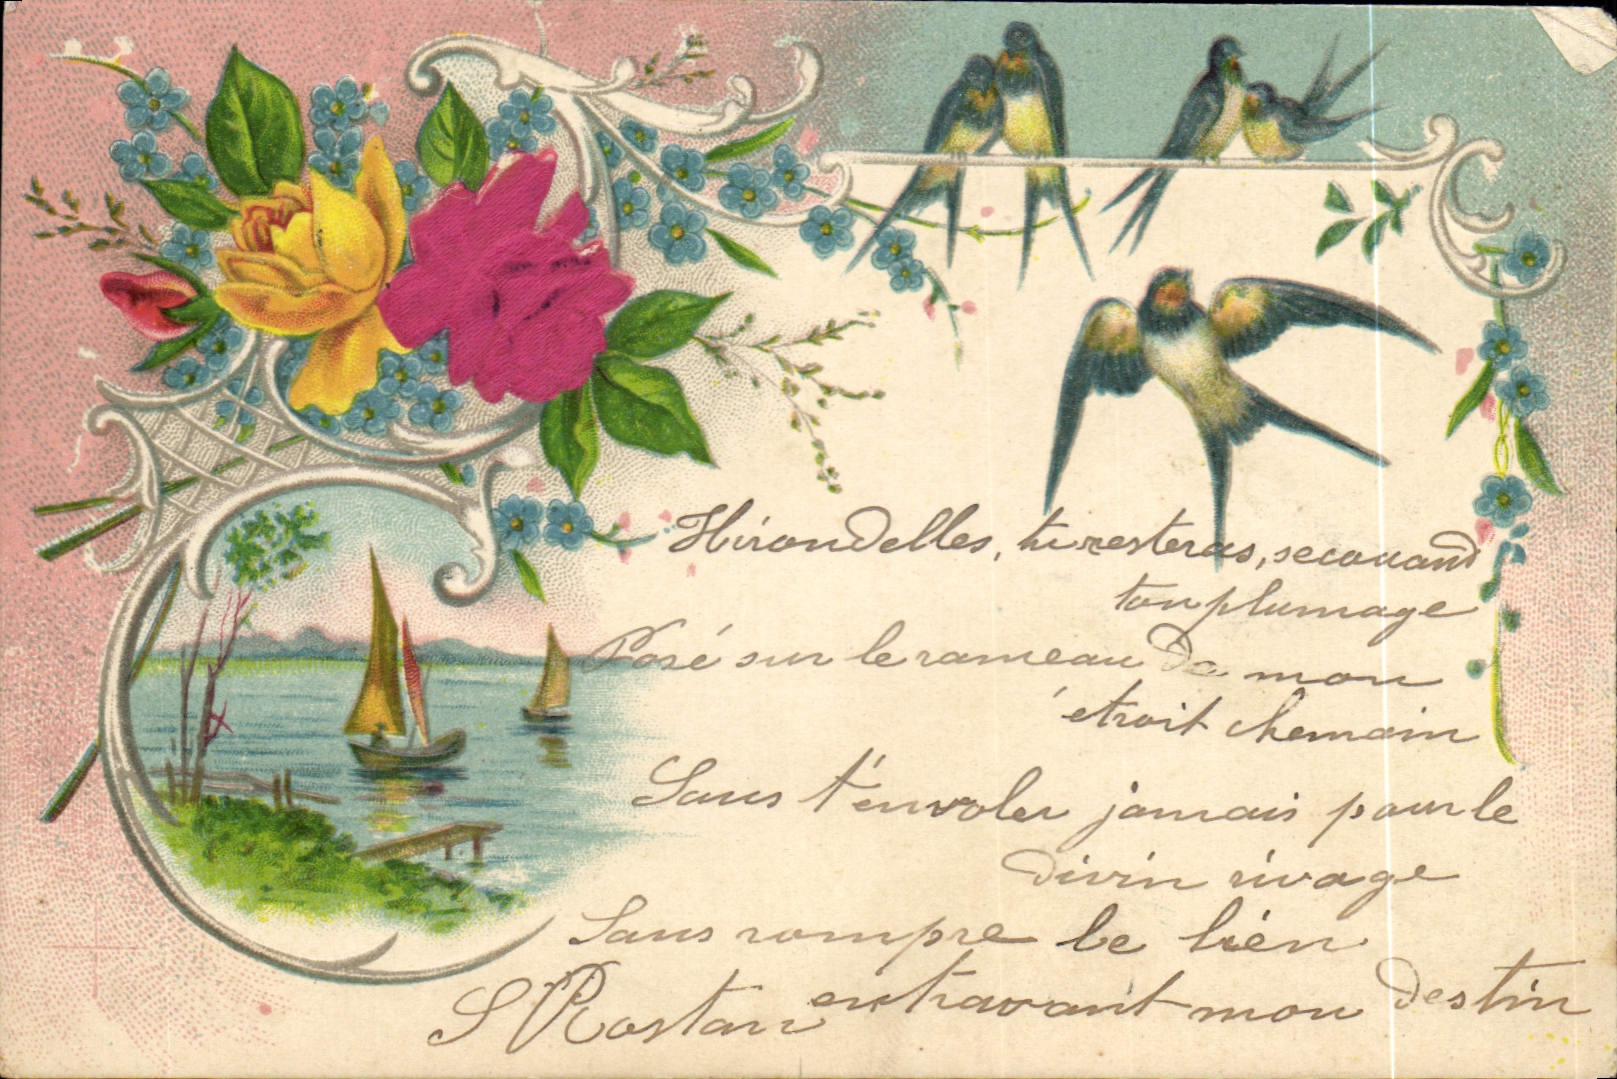 Hirondelles, tu resteras, secouant
ton plumage
Posé sur le rameau de mon
étroit chemain
Sans t'envoler jamais pour le
divin rivage
Sans rompre le lien
entravant mon destin
S Rostan